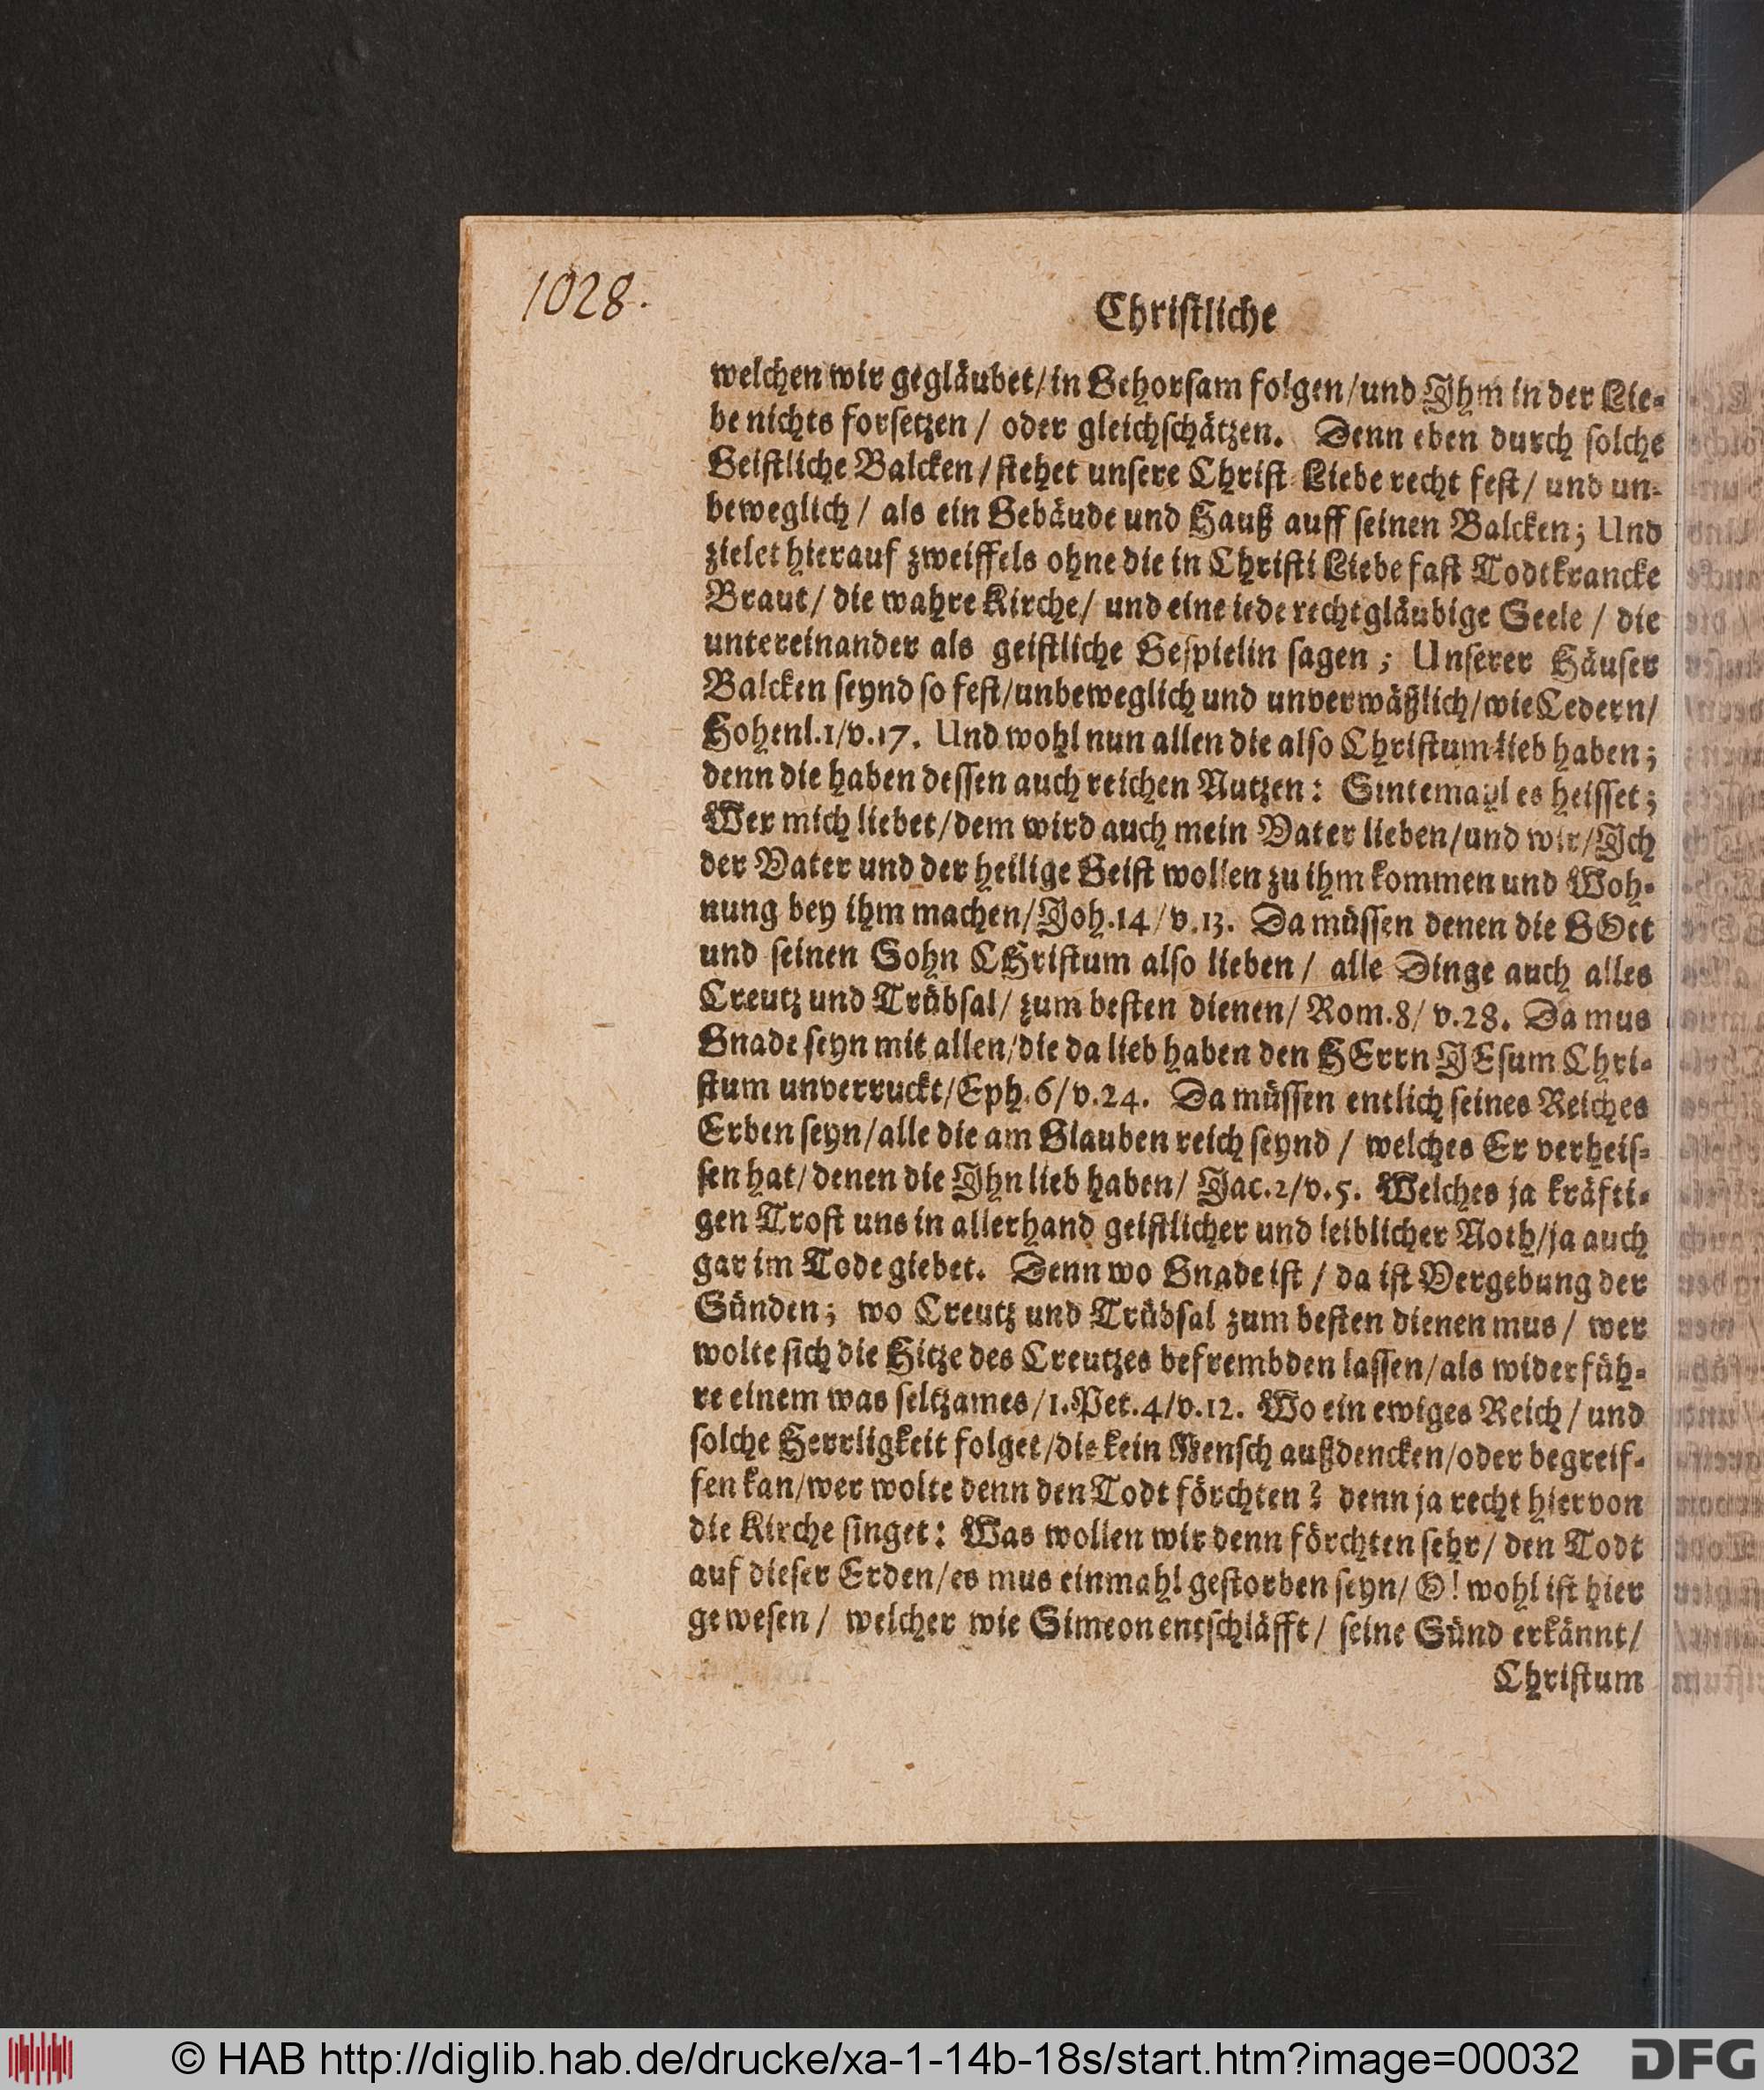 1028.
Christliche
welchen wir gegläubet/in Gehorsam folgen/und Jhm in der Lie-
be nichts forsetzen / oder gleichschätzen. Denn eben durch solche
Geistliche Balcken/stehet unsere Christ Liebe recht fest/ und un-
beweglich/ als ein Gebäude und Hauß auff seinen Balcken; Und
zielet hierauf zweiffels ohne die in Christi Liebe fast Todtkrancke
Braut/ die wahre Kirche/ und eine iede rechtgläubige Seele / die
untereinander als geistliche Gespielin sagen; Unserer Häuser
Balcken seynd so fest/unbeweglich und unverwäßlich/wie Cedern/
Hohenl.1/v.17. Und wohl nun allen die also Christum lieb haben;
denn die haben dessen auch reichen Nutzen: Sintemahl es heisset;
Wer mich liebet/dem wird auch mein Vater lieben/und wir/Jch
der Vater und der heilige Geist wollen zu ihm kommen und Woh-
nung bey ihm machen/Joh.14/v.13. Da müssen denen die GOtt
und seinen Sohn CHristum also lieben / alle Dinge auch alles
Creutz und Trübsal/ zum besten dienen/ Rom.8/ v.28. Da mus
Gnade seyn mit allen/die da lieb haben den HErrn JEsum Chri-
stum unverruckt/Eph.6/v.24. Da müssen entlich seines Reiches
Erben seyn/alle die am Glauben reich seynd / welches Er verheis-
sen hat/denen die Jhn lieb haben/ Jac.2/v.5. Welches ja kräfti-
gen Trost uns in allerhand geistlicher und leiblicher Noth/ja auch
gar im Tode giebet. Denn wo Gnade ist / da ist Vergebung der
Sünden; wo Creutz und Trübsal zum besten dienen mus / wer
wolte sich die Hitze des Creutzes befrembden lassen/als widerfüh-
re einem was seltzames/1.Pet.4/v.12. Wo ein ewiges Reich / und
solche Herrligkeit folget/die kein Mensch außdencken/oder begreif-
fen kan/wer wolte denn den Todt förchten? denn ja recht hiervon
die Kirche singet: Was wollen wir denn förchten sehr/ den Todt
auf dieser Erden/es mus einmahl gestorben seyn/ O! wohl ist hier
gewesen / welcher wie Simeon entschläfft/ seine Sünd erkännt/
Christum
© HAB http://diglib.hab.de/drucke/xa-1-14b-18s/start.htm?image=00032
DFG